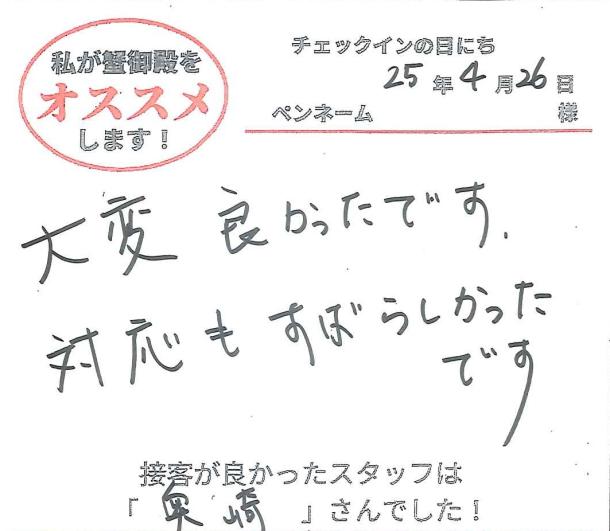 私が蟹御殿を
オススメ
します！
チェックインの日にち
25年4月26日
ペンネーム 様
大変良かったです.
対応もすばらしかった
です
接客が良かったスタッフは
「奥崎」さんでした！